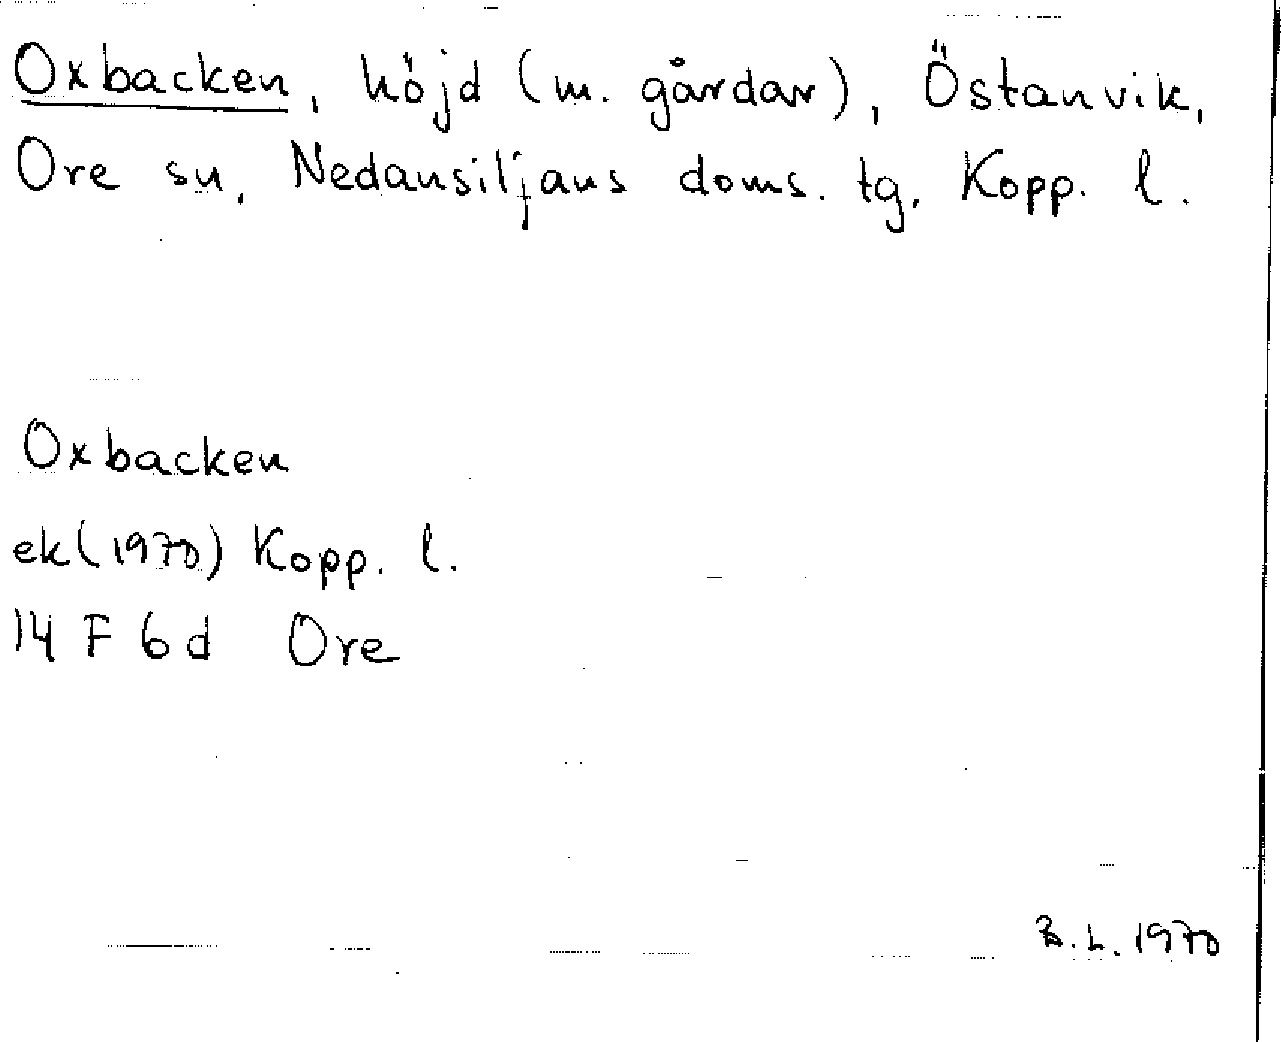 Oxbacken, höjd (m. gårdar), Östanvik,
Ore sn, Nedansiljans doms. tg. Kopp. l.
Oxbacken
ek (1970) Kopp. l.
14 F 6 d Ore
B.L. 1970